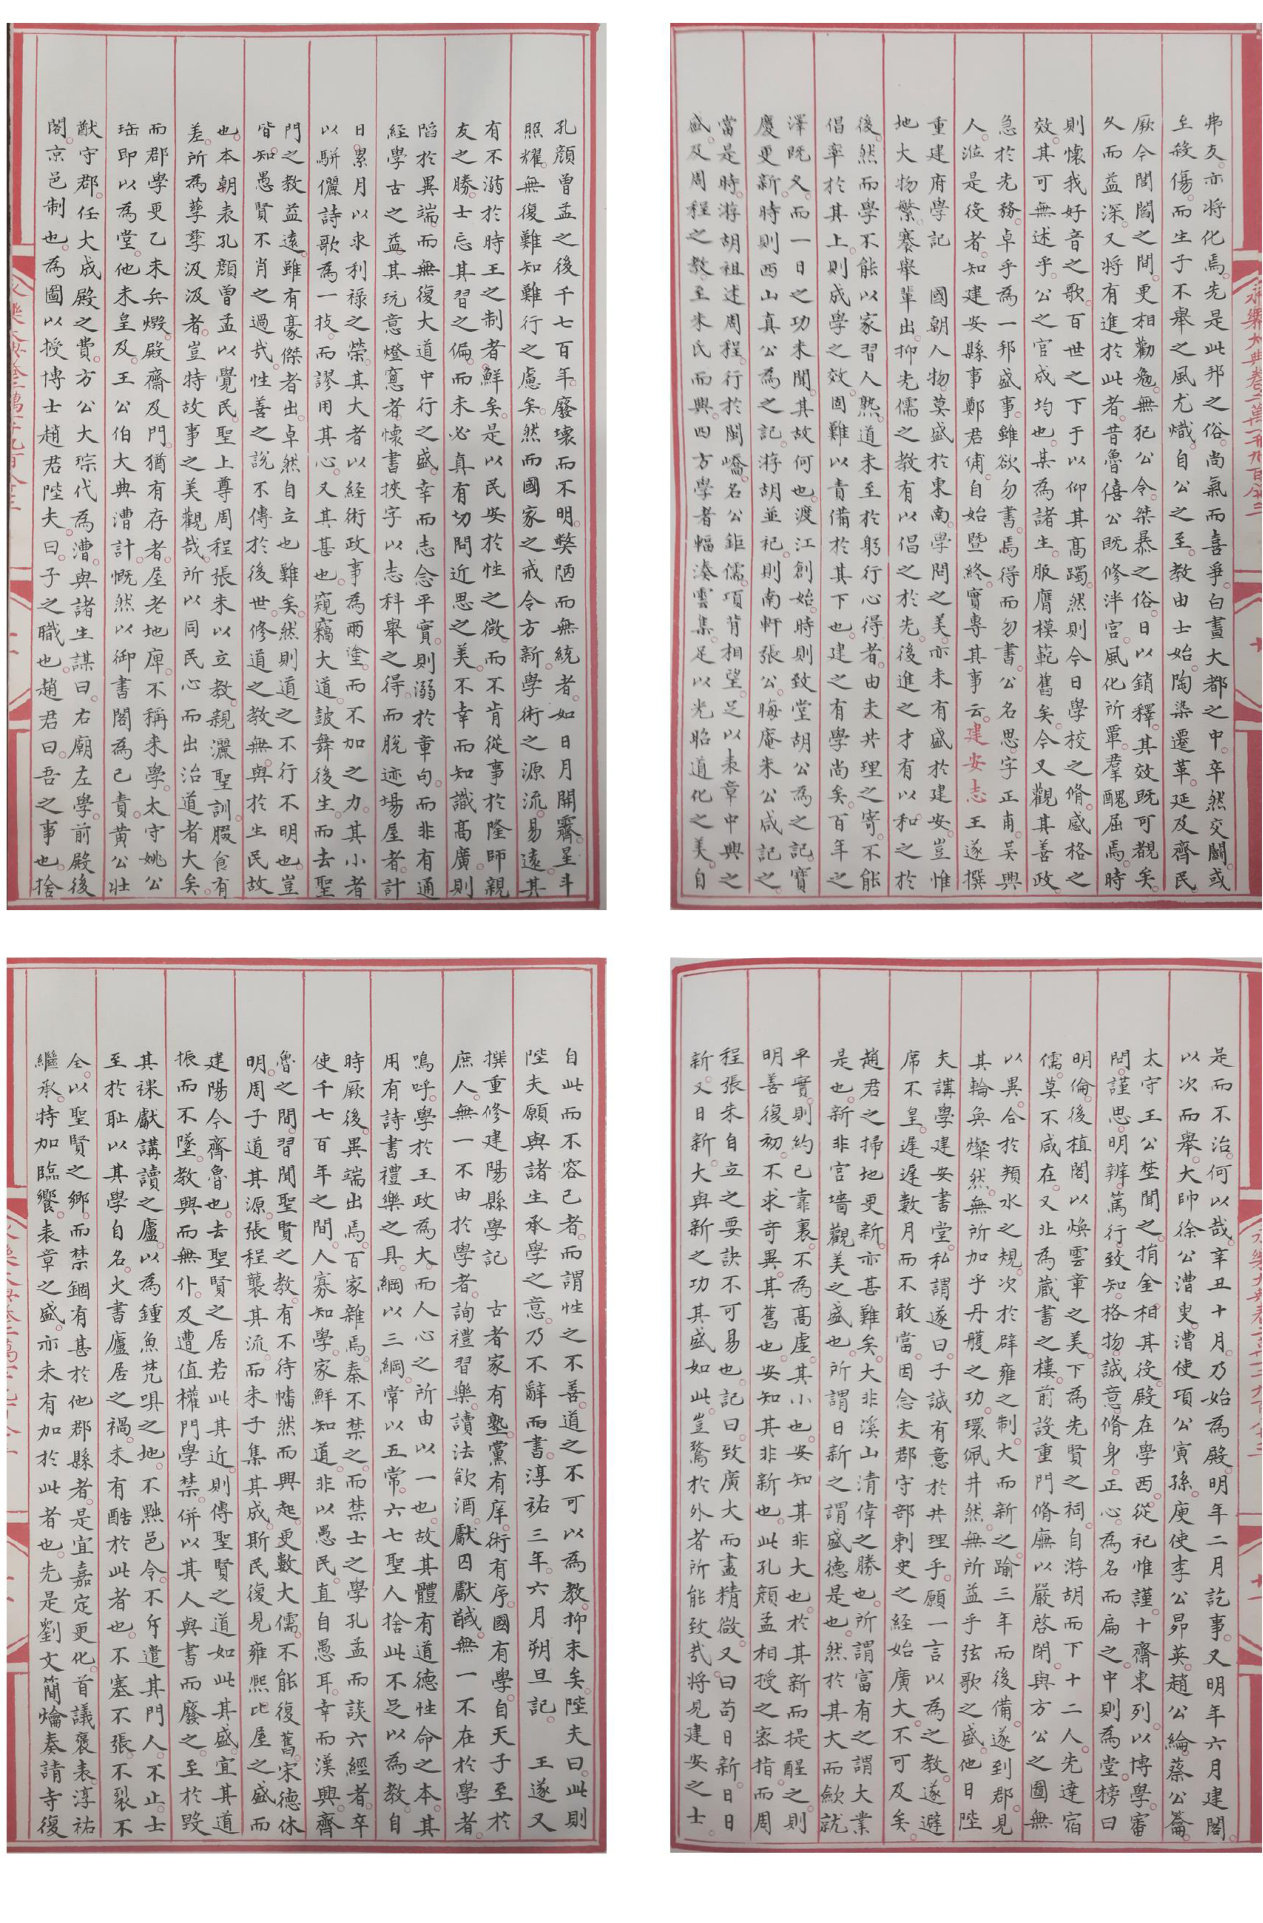 弗友亦將化焉先是此邦之俗尚氣而喜爭白晝大都之中卒然交鬭或
至殺傷而生子不舉之風尤熾自公之至教由士始陶染遷革延及齊民
厥今閭閻之間更相勸勉無犯公令桀暴之俗日以銷釋其效既可覩矣
久而益深又將有進於此者昔魯僖公既修泮宮風化所覃羣醜屈焉時
則懷我好音之歌百世之下于以仰其髙躅然則今日學校之脩感格之
效其可無述乎公之官成均也某為諸生服膺模範舊矣今又觀其善政
急於先務卓乎為一邦盛事雖欲勿書焉得而勿書公名思字正甫吳興
人涖是役者知建安縣事鄭君俌自始暨終實專其事云建安志王遂撰
重建府學記 國朝人物莫盛於東南學問之美亦未有盛於建安豈惟
地大物繁騫舉輩出抑先儒之教有以倡之於先後進之才有以和之於
後然而學不能以家習人熟道未至於躬行心得者由夫共理之寄不能
倡率於其上則成學之效固難以責備於其下也建之有學尚矣百年之
澤既久而一日之功未聞其故何也渡江創始時則致堂胡公為之記寶
慶更新時則西山真公為之記游胡並祀則南軒張公晦庵朱公咸記之
當是時游胡祖述周程行於閩嶠名公鉅儒項背相望足以表章中興之
盛及周程之教至朱氏而興四方學者輻湊雲集足以光昭道化之美自
孔顔曾孟之後千七百年廢壞而不明獘陋而無統者如日月開霽星斗
照耀無復難知難行之慮矣然而國家之戒令方新學術之源流易遠其
有不溺於時王之制者鮮矣是以民安於性之微而不肯從事於隆師親
友之勝士忘其習之偏而未必真有切問近思之美不幸而知識髙廣則
䧟於異端而無復大道中行之盛幸而志念平實則溺於章句而非有通
經學古之益其玩意燈窻者懷書挾字以志科舉之得而脫迹塲屋者計
日累月以求利祿之榮其大者以経術政事為兩塗而不加之力其小者
以駢儷詩歌為一技而謬用其心又其甚也窺竊大道鼓舞後生而去聖
門之教益遠雖有豪傑者出卓然自立也難矣然則道之不行不明也豈
皆知愚賢不肖之過㢤性善之說不傳於後世修道之教無與於生民故
也本朝表孔顔曾孟以覺民聖上尊周程張朱以立教親灑聖訓腏食有
差所為孳孳汲汲者豈特故事之美觀哉所以同民心而出治道者大矣
而郡學更乙未兵燬殿齋及門猶有存者屋老地庳不稱来學太守姚公
珤即以為堂他未皇及王公伯大典漕計慨然以御書閣為己責黄公壯
猷守郡任大成殿之費方公大琮代為漕與諸生謀曰右廟左學前殿後
閣京邑制也為圖以授博士趙君陞夫曰子之職也趙君曰吾之事也捨
是而不治何以哉辛丑十月乃始為殿明年二月訖事又明年六月建閣
以次而舉大帥徐公漕叟漕使項公寅孫庾使李公昴英趙公綸蔡公籥
太守王公埜聞之捐金相其役殿在學西從祀惟謹十齋東列以博學審
問謹思明辨篤行致知格物誠意脩身正心為名而扁之中則為堂榜曰
明倫後植閣以煥雲章之美下為先賢之祠自游胡而下十二人先達宿
儒莫不咸在又北為藏書之樓前設重門脩廡以嚴啓閉與方公之圖無
以異合於頖水之規次於辟雍之制大而新之踰三年而後備遂到郡見
其輪奐燦然無所加乎丹雘之功環佩井然無所益乎弦歌之盛他日陞
夫講學建安書堂私謂遂曰子誠有意於共理乎願一言以為之教遂避
席不皇遲遲數月而不敢當因念夫郡守部刺史之経始廣大不可及矣
趙君之掃地更新亦甚難矣大非溪山清偉之勝也所謂富有之謂大業
是也新非宫墻觀美之盛也所謂日新之謂盛德是也然於其大而歛就
平實則約已靠裏不為髙虛其小也安知其非大也於其新而提醒之則
明善復初不求奇異其舊也安知其非新也此孔顔孟相授之宻指而周
程張朱自立之要訣不可易也記曰致廣大而盡精微又曰苟日新日日
新又日新大與新之功其盛如此豈騖於外者所能致㢤將見建安之士
自此而不容已者而謂性之不善道之不可以為教抑末矣陞夫曰此則
陞夫願與諸生承學之意乃不辭而書淳祐三年六月朔旦記 王遂又
撰重修建陽縣學記 古者家有塾黨有庠術有序國有學自天子至於
庶人無一不由於學者詢禮習樂讀法飲酒獻囚獻馘無一不在於學者
嗚呼學於王政為大而人心之所由以一也故其體有道德性命之本其
用有詩書禮樂之具綱以三綱常以五常六七聖人捨此不足以為教自
時厥後異端出焉百家雜焉秦不禁之而禁士之學孔孟而談六經者卒
使千七百年之間人寡知學家鮮知道非以愚民直自愚耳幸而漢興齊
魯之間習聞聖賢之教有不待幡然而興起更數大儒不能復舊宋德休
明周子道其源張程襲其流而朱子集其成斯民復見雍熙比屋之盛而
建陽今齊魯也去聖賢之居若此其近則傳聖賢之道如此其盛宜其道
振而不墜教興而無仆及遭值權門學禁併以其人與書而廢之至於毀
其祼獻講讀之廬以為鍾魚梵唄之地不㸃邑令不斥遣其門人不止士
至於耻以其學自名火書廬居之禍未有酷於此者也不塞不張不裂不
全以聖賢之鄉而禁錮有甚於他郡縣者是宜嘉定更化首議褒表淳祐
繼承特加臨饗表章之盛亦未有加於此者也先是劉文簡爚奏請寺復